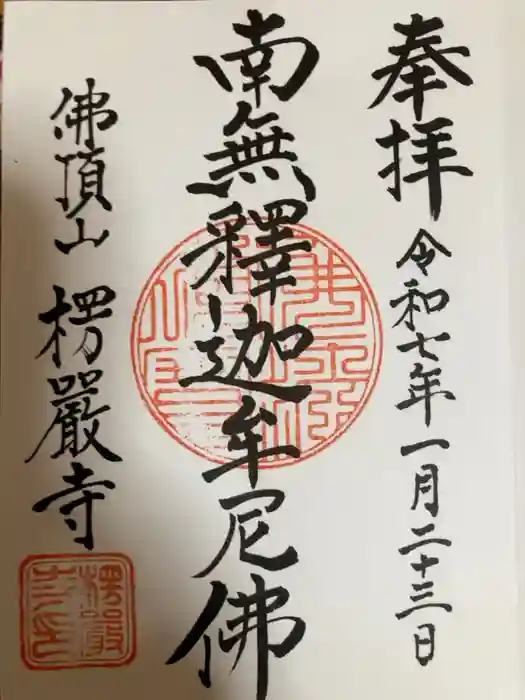 奉拝 令和七年一月二十三日
南無釋迦牟尼佛
佛頂山 楞嚴寺